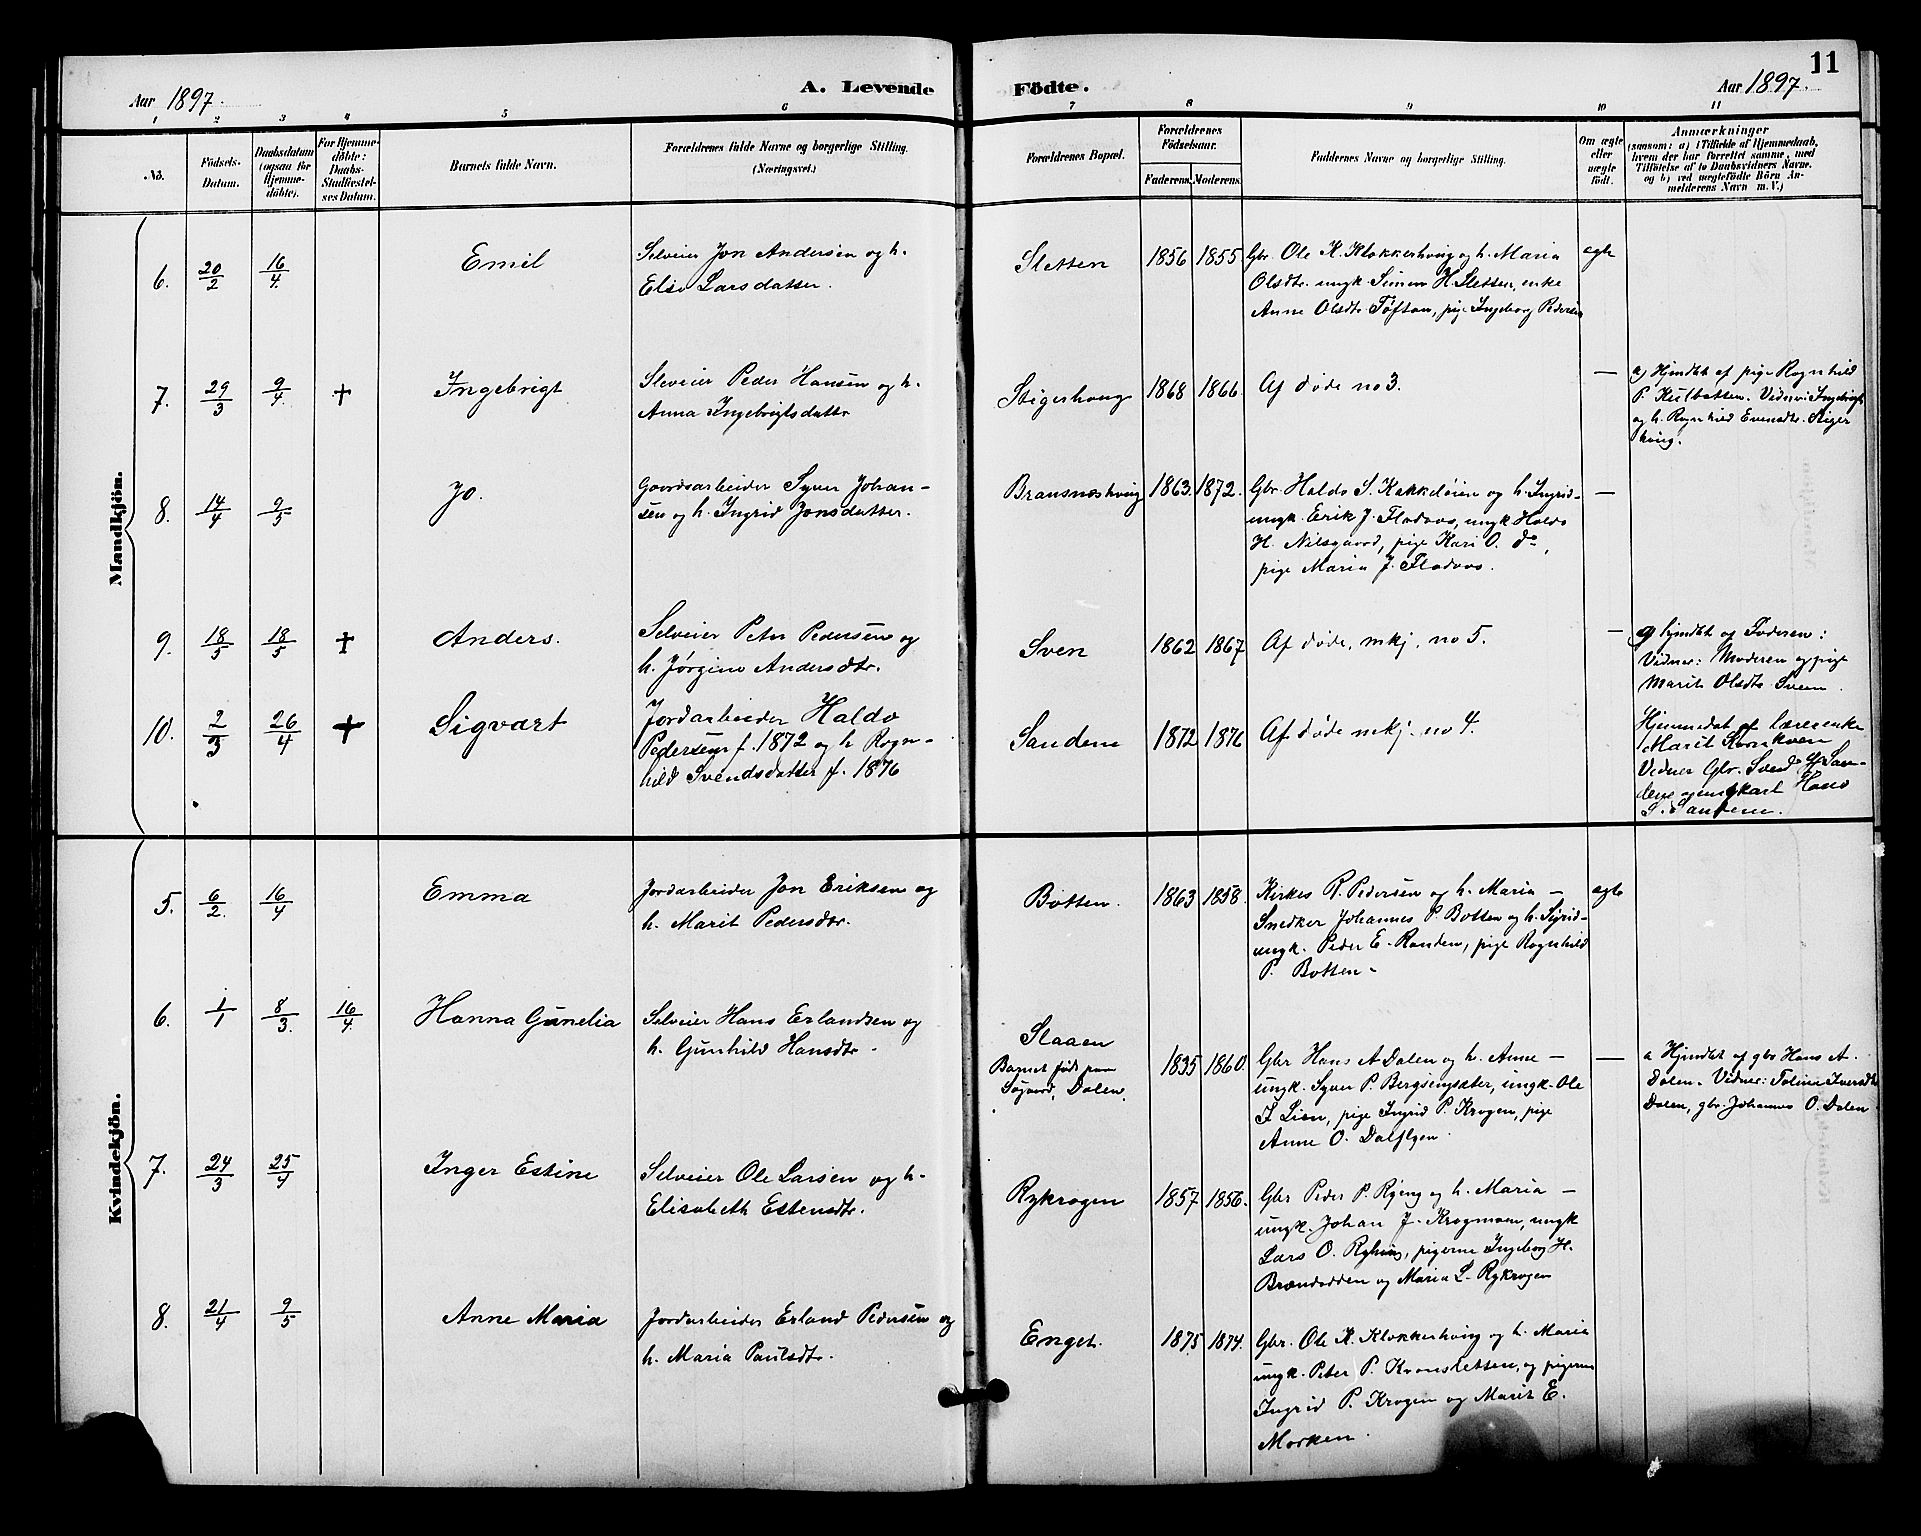 11
Aar 1897.
A. Levende
Födte.
Aar 1897.
1 2 3 4 5 6 7 8 9 10 11
No.
Födsels-
Datum.
Daabsdatum
(ogsaa for
Hjemme-
döbte).
For Hjemme-
döbte:
Daabs-
Stadfæstel-
ses Datum.
Barnets fulde Navn.
Forældrenes fulde Navne og borgerlige Stilling.
(Næringsvei.)
Forældrenes Bopæl.
Forældrenes
Födselsaar.
Faderens.
Moderens.
Faddernes Navne og borgerlige Stilling.
Om ægte
eller
uægte
födt.
Anmærkninger
(saasom: a) i Tilfælde af Hjemmedaab,
hvem der har forrettet samme, med
Tilföielse af to Daabsvidners Navne.
og b) ved uægtefödte Börn An-
melderens Navn m. V.)
Mandkjön.
6. 20/2 16/4 Emil
Selveier Jon Andersen og h.
Elise Larsdatter.
Sletten 1856 1855.
Gbr. Ole K. Klokkerhoug og h. Maria
Olsdtr. ungk. Simen H. Sletten, enke
Anne Olsdtr Tøften, pige Ingeborg Pedersen
ægte
7. 29/3 9/4. + Ingebrigt
Sleveier Peder Hansen og h.
Anna Ingebrigtsdattr
Stigerhoug 1868 1866.
Af døde no 3.
—
a) Hjmdbt af pige Ragnhild
P. Kultbotten. Vidner: Ingebrigt
og h. Ragnhild Evensdtr. Stiger
houg.
8. 14/4 9/5 Jo.
Gaardsarbeider Syver Johan-
sen og h. Ingrid Jonsdatter.
Bransneshoug 1863. 1872.
Gbr. Haldo S. Kakkeløien og h. Ingrid-
ungk. Erik J. Flodaas, ungk Haldo
H. Nilsgaard, pige Kari O. do,
pige Maria J. Flodaas.
—
9. 18/5 18/5 + Anders.
Selveier Peter Pedersen og
h. Jørgine Andersdtr.
Sven 1862 1867
Af døde, mkj. no 5.
—
a) hjmdbt af Faderen:
Vidner: Moderen og pige
Marit Olsdtr Sven.
10. 2/3 26/4 + Sigvart
Jordarbeider Haldo
Pedersen f. 1872 og h Ragn-
hild Svendsdatter f. 1876
Sandene 1872 1876
Af døde mkj. no 4.
Hjemmedøbt af lærerenke
Marit Kvernkven
Vidner Gbr. Svend H San-
dene og ungkart Hans
S. Sandene.
Kvindekjön.
5. 6/2. 16/4 Emma
Jordarbeider Jon Eriksen og
h. Marit Pedersdtr.
Botten. 1863 1858.
Kirkes. R. Pedersen og h. Maria —
Snedker Johannes P. Botten og h. Sigrid-
ungk. Peder E. Randen, pige Ragnhild
P. Botten-
ægte
6. 1/1 8/3. 16/4 Hanna Gunelia
Selveier Hans Erlandsen og
h. Gunhild Hansdtr.
Slaaen
Barnet født paa
Søgaard, Dalen.
1835 1860.
Gbr Hans A Dalen og h. Anne —
ungk. Syver P. Bergsengsæter, ungk. Ole
I Lien, pige Ingrid P. Krogen, pige
Anne O. Dalflyen.
—
a Hjmdbt af gbr Hans A.
Dalen. Vidner: Toline Iversdtr
Dalen, gbr. Johannes O. Dalen
7. 24/3 25/4 Inger Estine
Selveier Ole Larsen og h.
Elisabeth Estensdtr.
Rykrogen 1857 1856.
Gbr Peder P. Ryeng og h. Maria —
ungk. Johan J. Krogmoen, ungk
Lars O. Ryhaug, pigerne Ingeborg H.
Brændodden og Maria L. Rykrogen
8. 21/4 9/5 Anne Maria
Jordarbeider Erland Pedersen og
h. Maria Paulsdtr.
Enget. 1875 1874.
Gbr. Ole K. Klokkerhoug og h. Maria
ungk. Peter P. Kvonsletten, og pigerne
Ingrid P. Krogen og Marit E.
Morken.